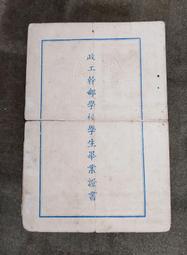 政工幹部學校學生畢業證書